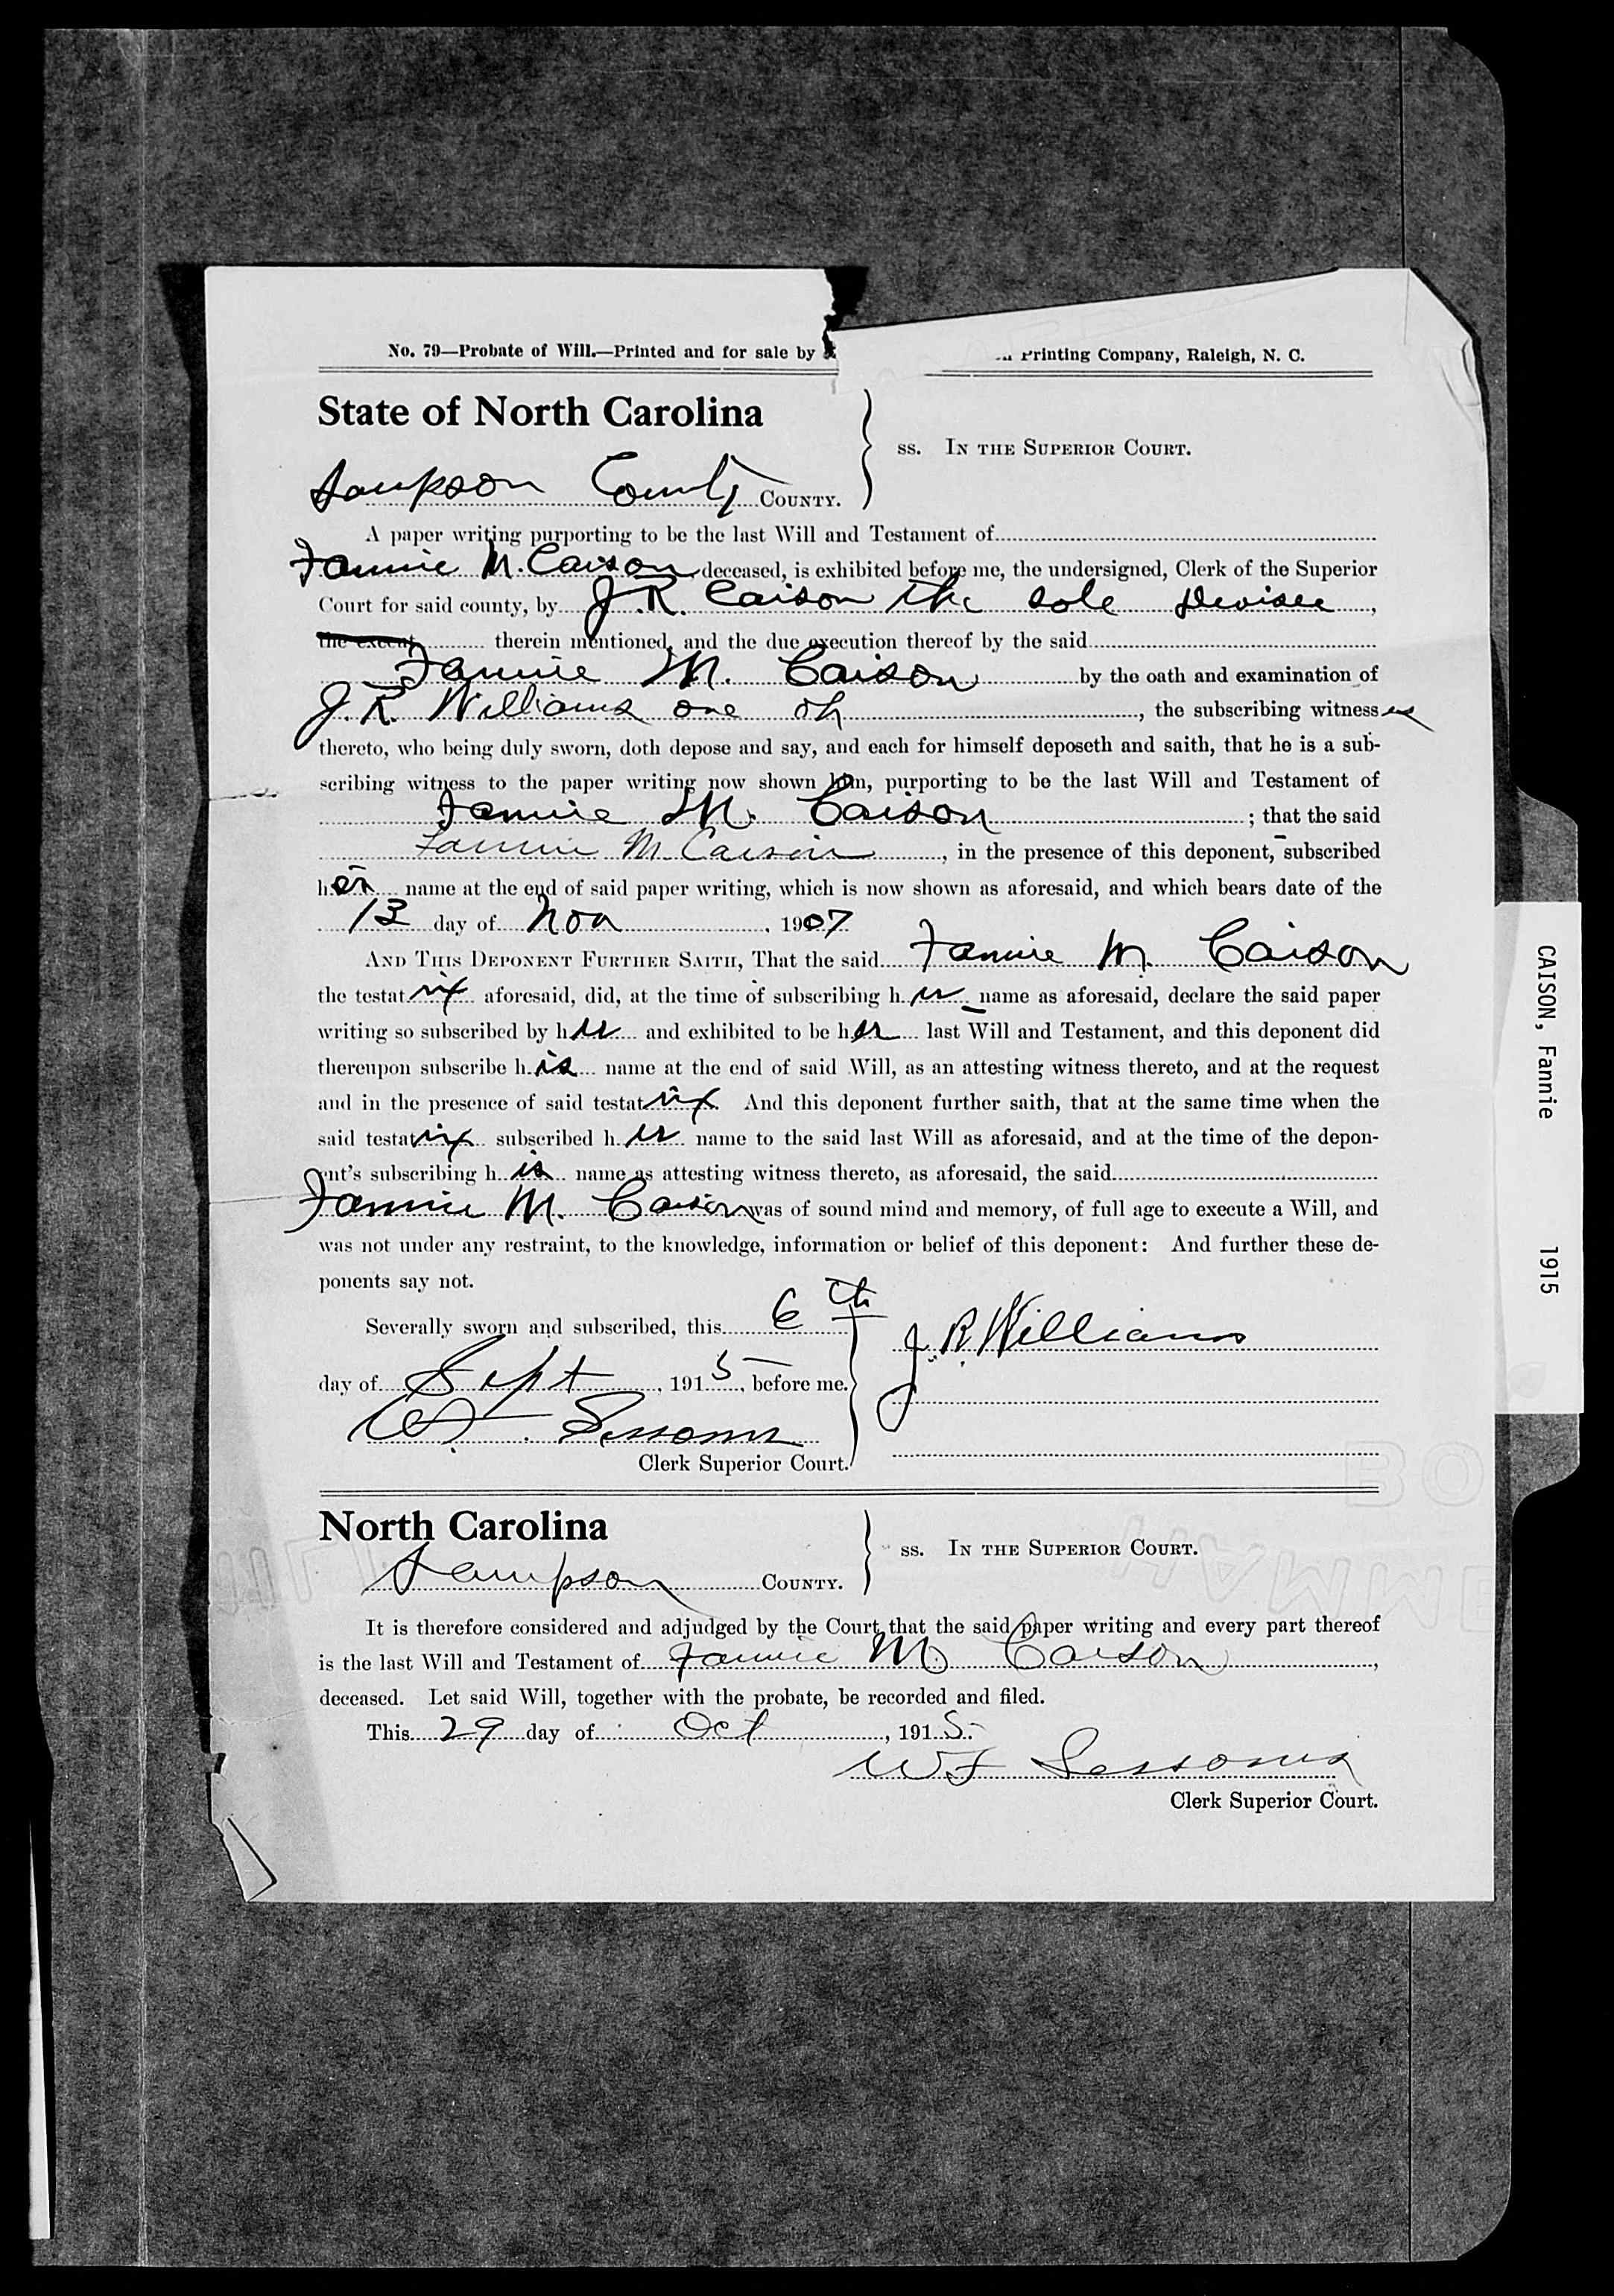 No. 79—Probate of Will.—Printed and for sale by
Printing Company, Raleigh, N. C.
State of North Carolina
ss. In the Superior Court.
Sampson County County.
A paper writing purporting to be the last Will and Testament of
Fannie M. Caison deceased, is exhibited before me, the undersigned, Clerk of the Superior
Court for said county, by J. R. Caison the sole Devisee,
the execut therein mentioned, and the due execution thereof by the said
Fannie M. Caison by the oath and examination of
J. R. Williams one of, the subscribing witnesses
thereto, who being duly sworn, doth depose and say, and each for himself deposeth and saith, that he is a sub-
scribing witness to the paper writing now shown him, purporting to be the last Will and Testament of
Fannie M. Caison; that the said
Fannie M. Caison, in the presence of this deponent, subscribed
her name at the end of said paper writing, which is now shown as aforesaid, and which bears date of the
13 day of Nov, 1907
And This Deponent Further Saith, That the said Fannie M. Caison
the testatrix aforesaid, did, at the time of subscribing her name as aforesaid, declare the said paper
writing so subscribed by her and exhibited to be her last Will and Testament, and this deponent did
thereupon subscribe his name at the end of said Will, as an attesting witness thereto, and at the request
and in the presence of said testatrix. And this deponent further saith, that at the same time when the
said testatrix subscribed her name to the said last Will as aforesaid, and at the time of the depon-
ent's subscribing his name as attesting witness thereto, as aforesaid, the said
Fannie M. Caison was of sound mind and memory, of full age to execute a Will, and
was not under any restraint, to the knowledge, information or belief of this deponent: And further these de-
ponents say not.
Severally sworn and subscribed, this 6th
J. R. Williams
day of Sept, 1915, before me.
W F Sessoms
Clerk Superior Court.
North Carolina
ss. In the Superior Court.
Sampson County.
It is therefore considered and adjudged by the Court that the said paper writing and every part thereof
is the last Will and Testament of Fannie M. Caison,
deceased. Let said Will, together with the probate, be recorded and filed.
This 29 day of Oct, 1915.
W F Sessoms
Clerk Superior Court.
CAISON, Fannie 1915